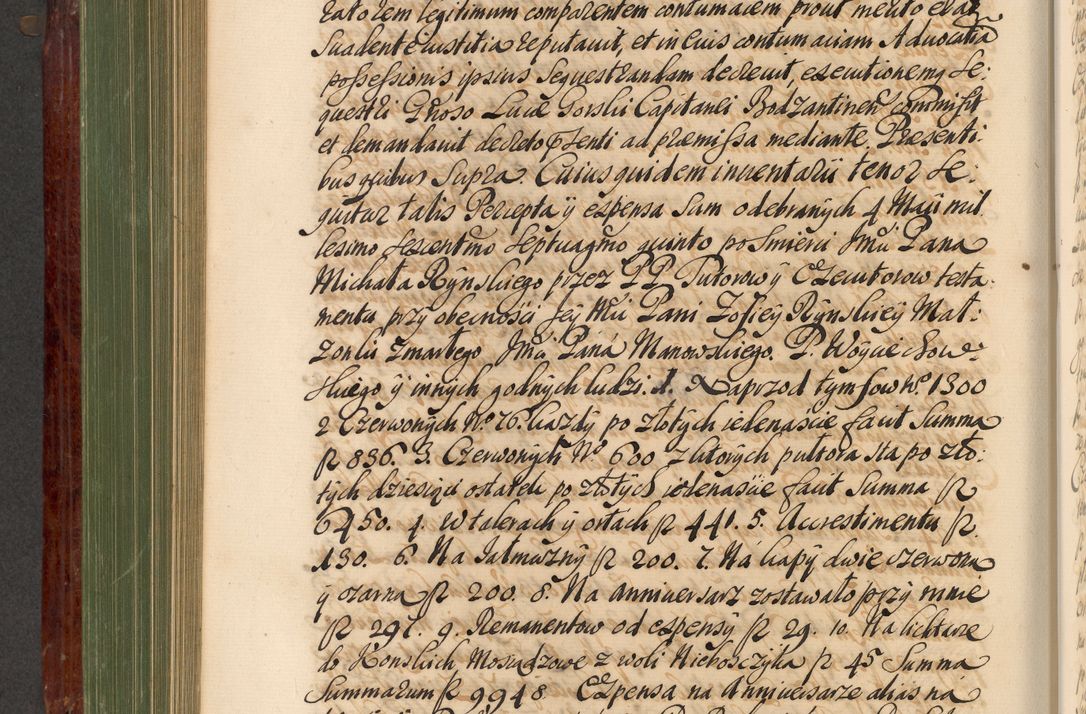 ratorem legitimum comparentem contumacem prout merito eran
Suadente iustitia reputauit, et in euis contumaciam Aduocatia
possessionis ipsius Sequestrandam decreuit, executionemq Se:
questri Gnoso Lucæ Gorski Capitanei Bodzantinen commisit
et demandauit decreto psenti ad præmissa mediante. Præsenti:
bus quibus Supra. Cuius quidem inuentarii tenor Se:
quitur talis Percepta ÿ expensa Sum odebranÿch 4 Maii mil
lesimo Sexcentmo Septuagmo quinto po Smierci Jmci Pana
Michała Rÿnskiego przez PP. Tutorow ÿ Exekutorow testa
mentu przÿ obecnosci Jeÿ Mci Pani Zofieÿ Rÿnskieÿ Mał:
zonki zmarłego Jmci Pana Manowskiego. P. Woÿciechow
skiego ÿ innÿch godnÿch ludzi. 1. Naprzod tÿmfow No. 1300
2 Czerwonÿch No. 76. kazdÿ po złotÿch iedenascie facit Summa
fl 836. 3. Czerwonÿch No 600 z ktorÿch pułtora sta po zło:
tÿch dziesięci ostatek po złotÿch iedenascie facit Summa fl
6450. 4. W talerach ÿ ortach fl 441. 5. Accrestimentu fl
130. 6. Na Jałmuznÿ fl 200. 7. Na kapÿ dwie czerwona
ÿ czarna fl 200. 8. Na anniuersarz zostawało przÿ mnie
fl 291. 9. Remanentow od expensÿ fl 29. 10. Na lichtarze
do Konskich Mosiądzowe z woli Nieboszczÿka fl 45 Summa
Summarum fl 9948. Expensa na Anniuersarze alias na